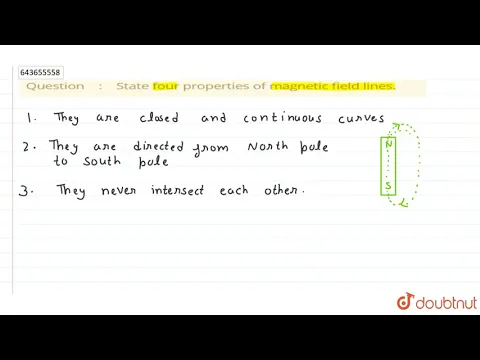 643655558
Question : State four properties of magnetic field lines.
1. They are closed and continuous curves
2. They are directed from North pole
to south pole
3. They never intersect each other.
N
S
doubtnut